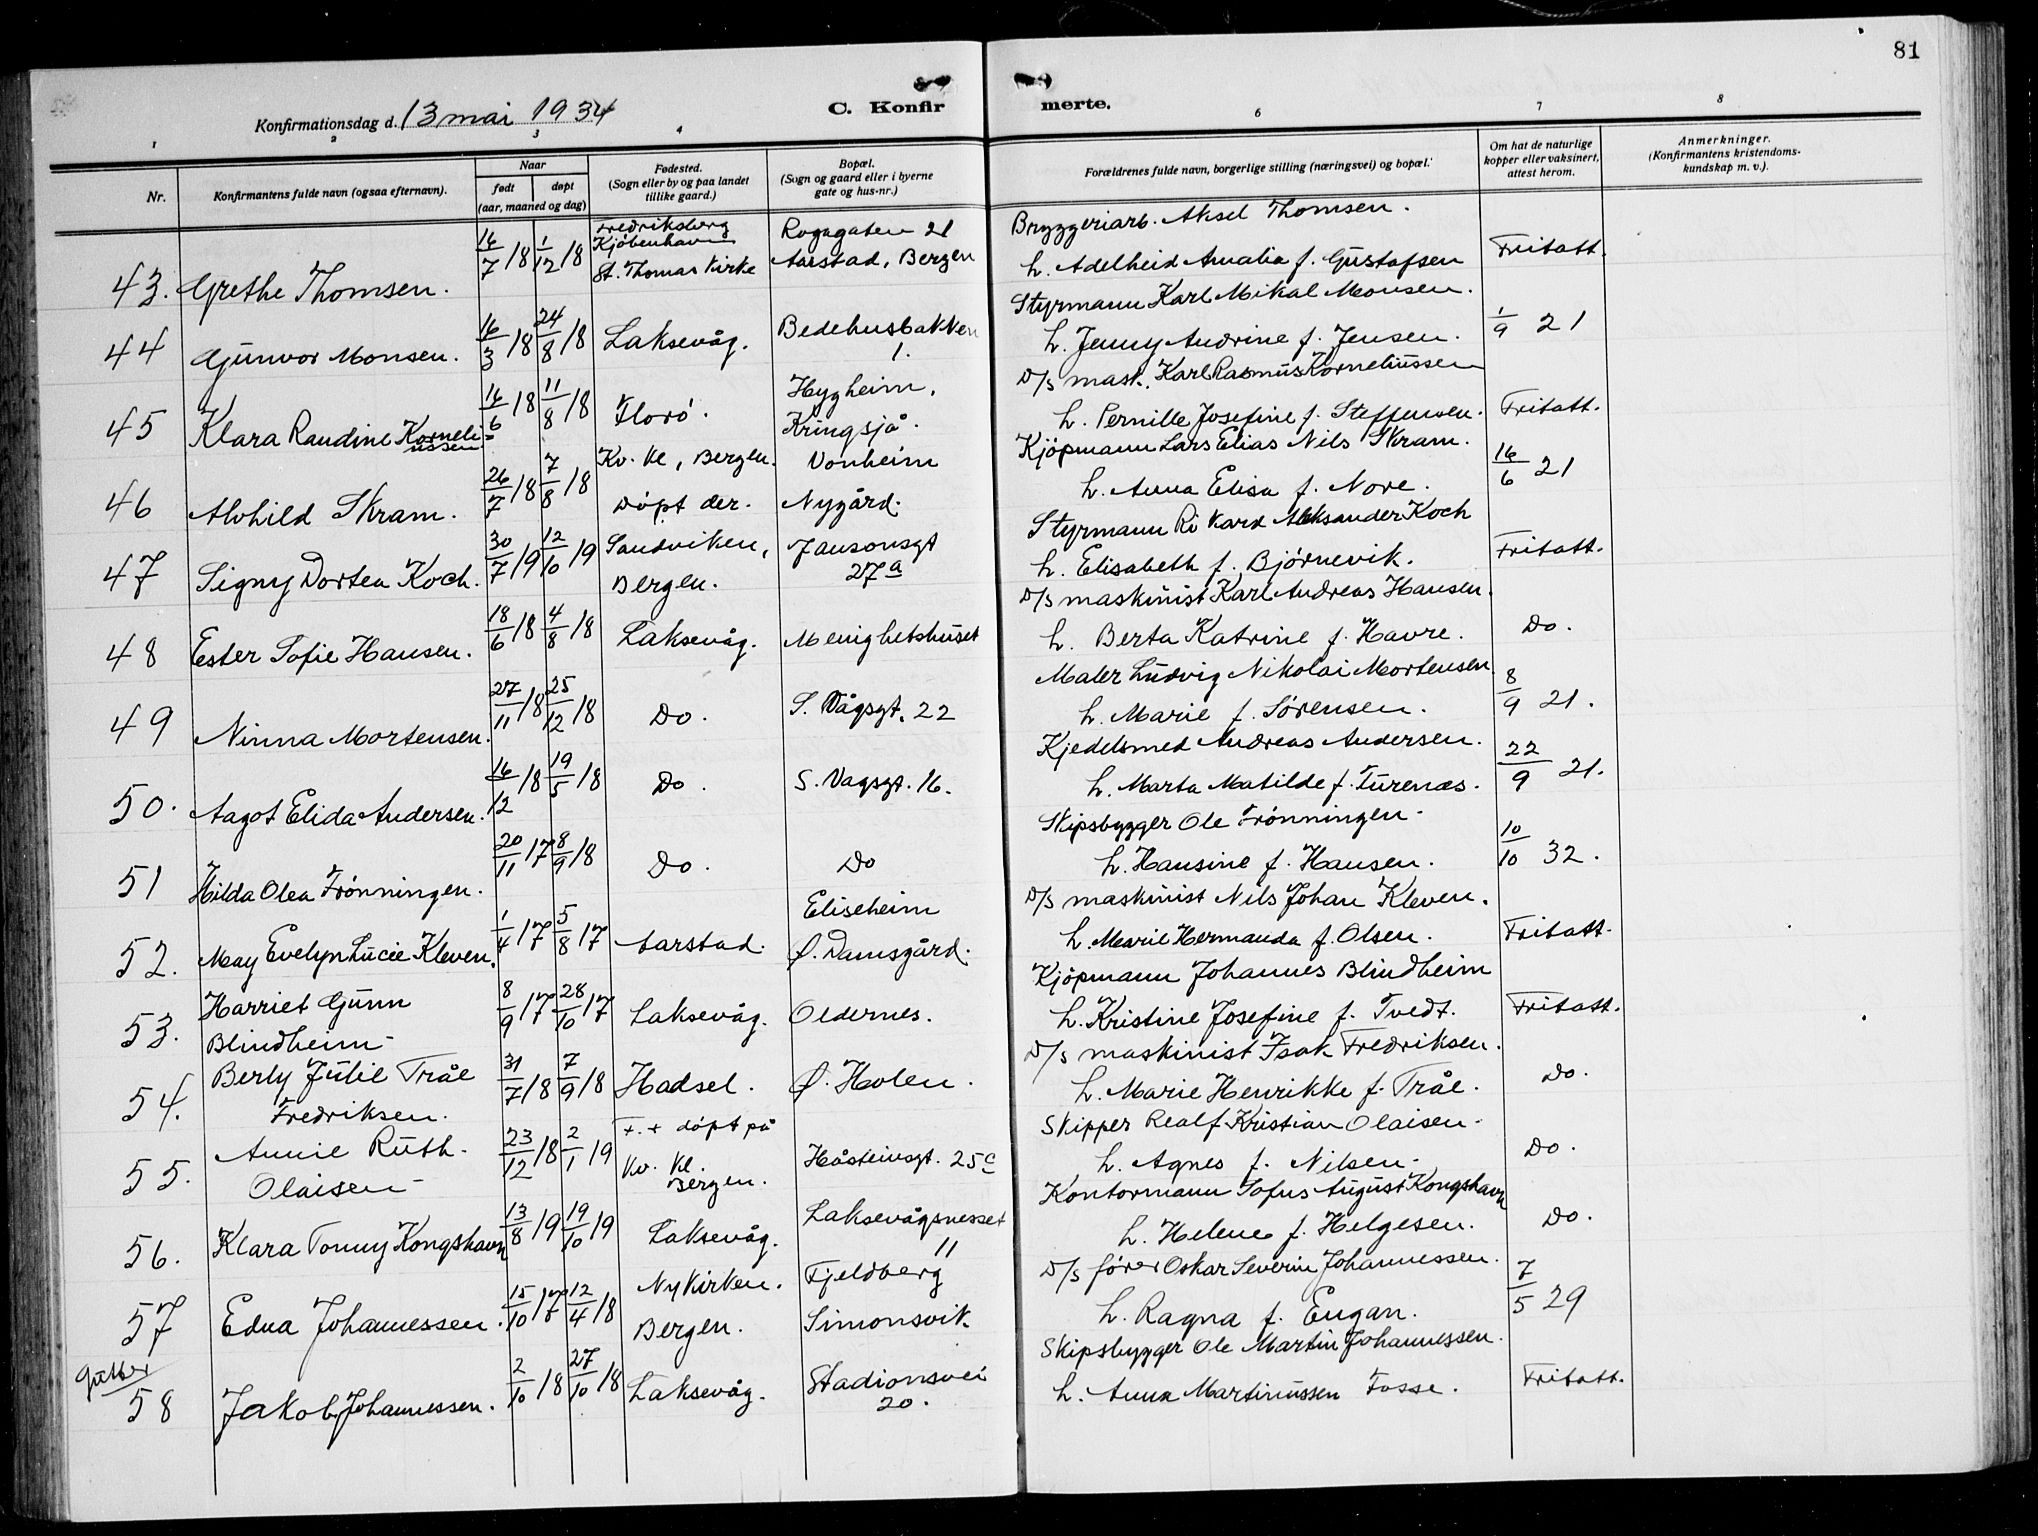 81
Konfirmationsdag d. 13 mai 1934
C. Konfir
merte.
1 2 3 4 6 7 8
Nr.
Konfirmantens fulde navn (ogsaa efternavn).
Naar
født
døpt
(aar, maaned og dag)
Fødested.
(Sogn eller by og paa landet
tillike gaard.)
Bopæl.
(Sogn og gaard eller i byerne
gate og hus-nr.)
Forældrenes fulde navn, borgerlige stilling (næringsvei) og bopæl.
Om hat de naturlige
kopper eller vaksinert,
attest herom.
Anmerkninger.
(Konfirmantens kristendoms-
kundskap m. v.).
43. Grethe Thomsen. 16/7/18 1/12/18
Fredriksberg
Kjöbenhavn
St. Thomas Kirke
Rogagaten 21
Aarstad, Bergen
Bryggeriarb. Aksel Thomsen.
h. Adelheid Amalia f. Gustafsen
Fritatt.
44 Gunvor Monsen. 16/3/18 24/8/18 Laksevåg.
Bedehusbakken
1.
Styrmann Karl Mikal Monsen.
h. Jenny Andrine f. Jensen.
1/9 21
45 Klara Raudine Korneli-
ussen
16/6/18 11/8/18 Florö.
Hygheim,
Kringsjå.
D/s mask. Karl Rasmus Korneliussen
h. Pernille Josefine f. Steffensen.
Fritatt.
46 Alvhild Skram. 26/7/18 7/8/18
Kv. kl, Bergen.
Döpt der.
Vonheim
Nygård.
Kjöpmann Lars Elias Nils Skram.
h. Anna Elisa f. Nore.
16/6 21
47 Signy Dortea Koch. 30/7/19 12/10/19
Sandviken,
Bergen.
Jansonsgt
27a
Styrmann Rikard Aleksander Koch
h. Elisabeth f. Bjørnevik.
Fritatt.
48 Ester Sofie Hansen. 18/6/18 4/8/18 Laksevåg. Menighetshuset
D/s maskinist Karl Andreas Hansen.
h. Berta Katrine f. Havre.
Do.
49 Ninna Mortensen. 27/11/18 25/12/18 Do. S. Vågsgt. 22
Maler Ludvig Nikolai Mortensen
h. Marie f. Sørensen.
8/9 21.
50. Aagot Elida Andersen. 16/12/18 19/5/18 Do. S. Vagsgt. 16.
Kjedelsmed Andreas Andersen.
h. Marta Matilde f. Turenæs.
22/9 21.
51 Hilda Olea Trønningen. 20/11/17 8/9/18 Do. Do
Skipsbygger Ole Trønningen.
h. Hansine f. Hansen.
10/10 32.
52. May Evelyn Lucie Kleven. 1/4/17 5/8/17 Aarstad.
Eliseheim
Ø. Damsgård.
D/s maskinist Nils Johan Kleven.
h. Marie Hermanda f. Olsen.
Fritatt.
53. Harriet Gunn
Blindheim
8/9/17 28/10/17 Laksevåg. Oldernes.
Kjöpmann Johannes Blindheim
h. Kristine Josefine f. Tvedt.
Fritatt.
54. Berly Julie Tråe
Fredriksen.
31/7/18 7/9/18 Hadsel. Ø. Holen.
D/s maskinist Isak Fredriksen.
h. Marie Henrikke f. Tråe.
Do.
55. Annie Ruth.
Olaisen
23/12/18 2/1/19
döpt på
Kv. Kl.
Bergen.
Håsteinsgt. 25c
Skipper Realf Kristian Olaisen.
h. Agnes f. Nilsen.
Do.
56. Klara Tonny Kongshavn 13/8/19 19/10/19 Laksevåg.
Laksevågsnesset
11
Kontormann Sofus August Kongshavn
h. Helene f. Helgesen.
Do.
57 Edna Johannessen. 15/10/17 12/4/18
Nykirken.
Bergen.
Fjeldberg
Simonsvik
D/s fører Oskar Severin Johannessen.
h. Ragna f. Engan.
7/5 29
Gutter
58 Jakob Johannessen. 2/10/18 27/10/18 Laksevåg.
Stadionsvei
20.
Skipsbygger Ole Martin Johannessen.
h. Anna Martinussen Fosse.
Fritatt.